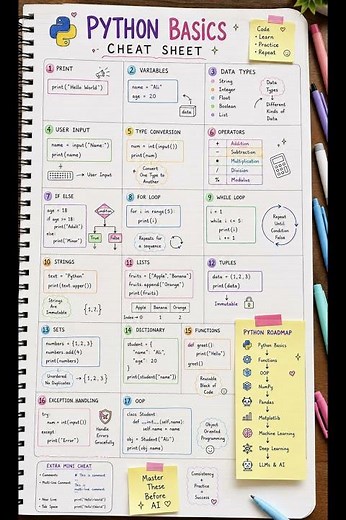 PYTHON BASICS
CHEAT SHEET
Code
• Learn
• Practice
• Repeat
1 PRINT
print("Hello World")
2 VARIABLES
name = "Ali"
age = 20
data
3 DATA TYPES
String
Integer
Float
Boolean
List
Data
Types
Different
Kinds of
Data
4 USER INPUT
name = input("Name:")
print(name)
User Input
5 TYPE CONVERSION
num = int(input())
print(num)
Convert
One Type to
Another
6 OPERATORS
+ Addition
- Subtraction
* Multiplication
/ Division
% Modulus
7 IF ELSE
age = 18
if age >= 18:
print("Adult")
else:
print("Minor")
True
False
8 FOR LOOP
for i in range(5):
print(i)
Repeats for a
sequence
9 WHILE LOOP
i = 1
while i <= 5:
print(i)
i += 1
Repeat
Until
Condition
False
10 STRINGS
text = "Python"
print(text.upper())
Strings
Are
Immutable
{1,2,}
11 LISTS
fruits = ["Apple","Banana"]
fruits.append("Orange")
print(fruits)
Apple Banana Orange
Index → 0 1 2
12 TUPLES
data = (1,2,3)
print(data)
Immutable
13 SETS
numbers = {1,2,3}
numbers.add(4)
print(numbers)
Unordered
No Duplicates
{1,2,3}
14 DICTIONARY
student = {
"name": "Ali",
"age": 20
}
print(student["name"])
15 FUNCTIONS
def greet():
print("Hello")
greet()
Reusable
Block of
Code
PYTHON ROADMAP
Python Basics
Functions
OOP
NumPy
Pandas
Matplotlib
Machine Learning
Deep Learning
LLMs & AI
16 EXCEPTION HANDLING
try:
num = int(input())
except:
print("Error")
Handle
Errors
Gracefully
17 OOP
class Student:
self.name = name
obj = Student("Ali")
print(obj.name)
Object
Oriented
Programming
EXTRA MINI CHEAT
• Comments
• Multi-line Comment
• New Line
• Tab Space
Master
These
Before
AI
Consistency
+
Practice
=
Success